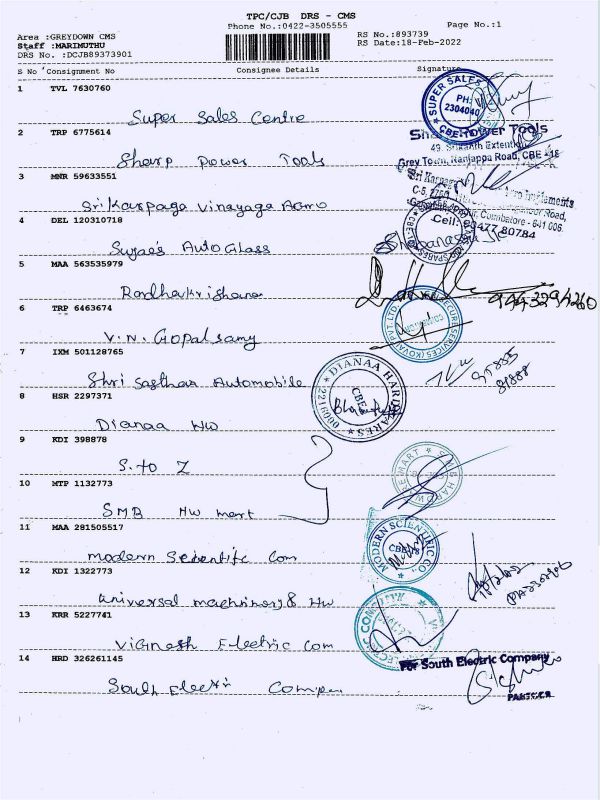 TPC/CJB DRS - CMS
Phone No.:0422-3505555
Page No.:1
Area :GREYDOWN CMS
Staff :MARIMUTHU
DRS No. :DCJB89373901
RS No.:893739
RS Date:18-Feb-2022
S No Consignment No Consignee Details Signature
1 TVL 7630760
Super Sales Centre
SUPER SALES
PH: 2304040
2 TRP 6775614
Sharp Power Tools
Power Tools
49, Srikanth Extention,
Grey Town, Nanjappa Road, CBE - 18
3 MNR 59633551
Sri Karpaga Vinayaga Agro
Coimbatore - 641 006.
Cell: 80477 80784
4 DEL 120310718
Sugae's Auto Glass
5 MAA 563535979
Radhakrishana
9443294260
6 TRP 6463674
V.N. Gopalsamy
SECURE SERVICES (KOVAI) PVT. LTD
7 IXM 501128765
Shri Sasthaa Automobile
8 HSR 2297371
Dianaa Hw
DIANAA HARDWARES
CBE
9 KDI 398878
S. to Z
10 MTP 1132773
SMB Hw mart
11 MAA 281505517
Modern Scientific Com
MODERN SCIENTIFIC CO.,
CBE-18
12 KDI 1322773
Universal machinery & Hw
13 KRR 5227741
Vignesh Electric Com
14 HRD 326261145
South Electri Compan
For South Electric Company
PARTNER